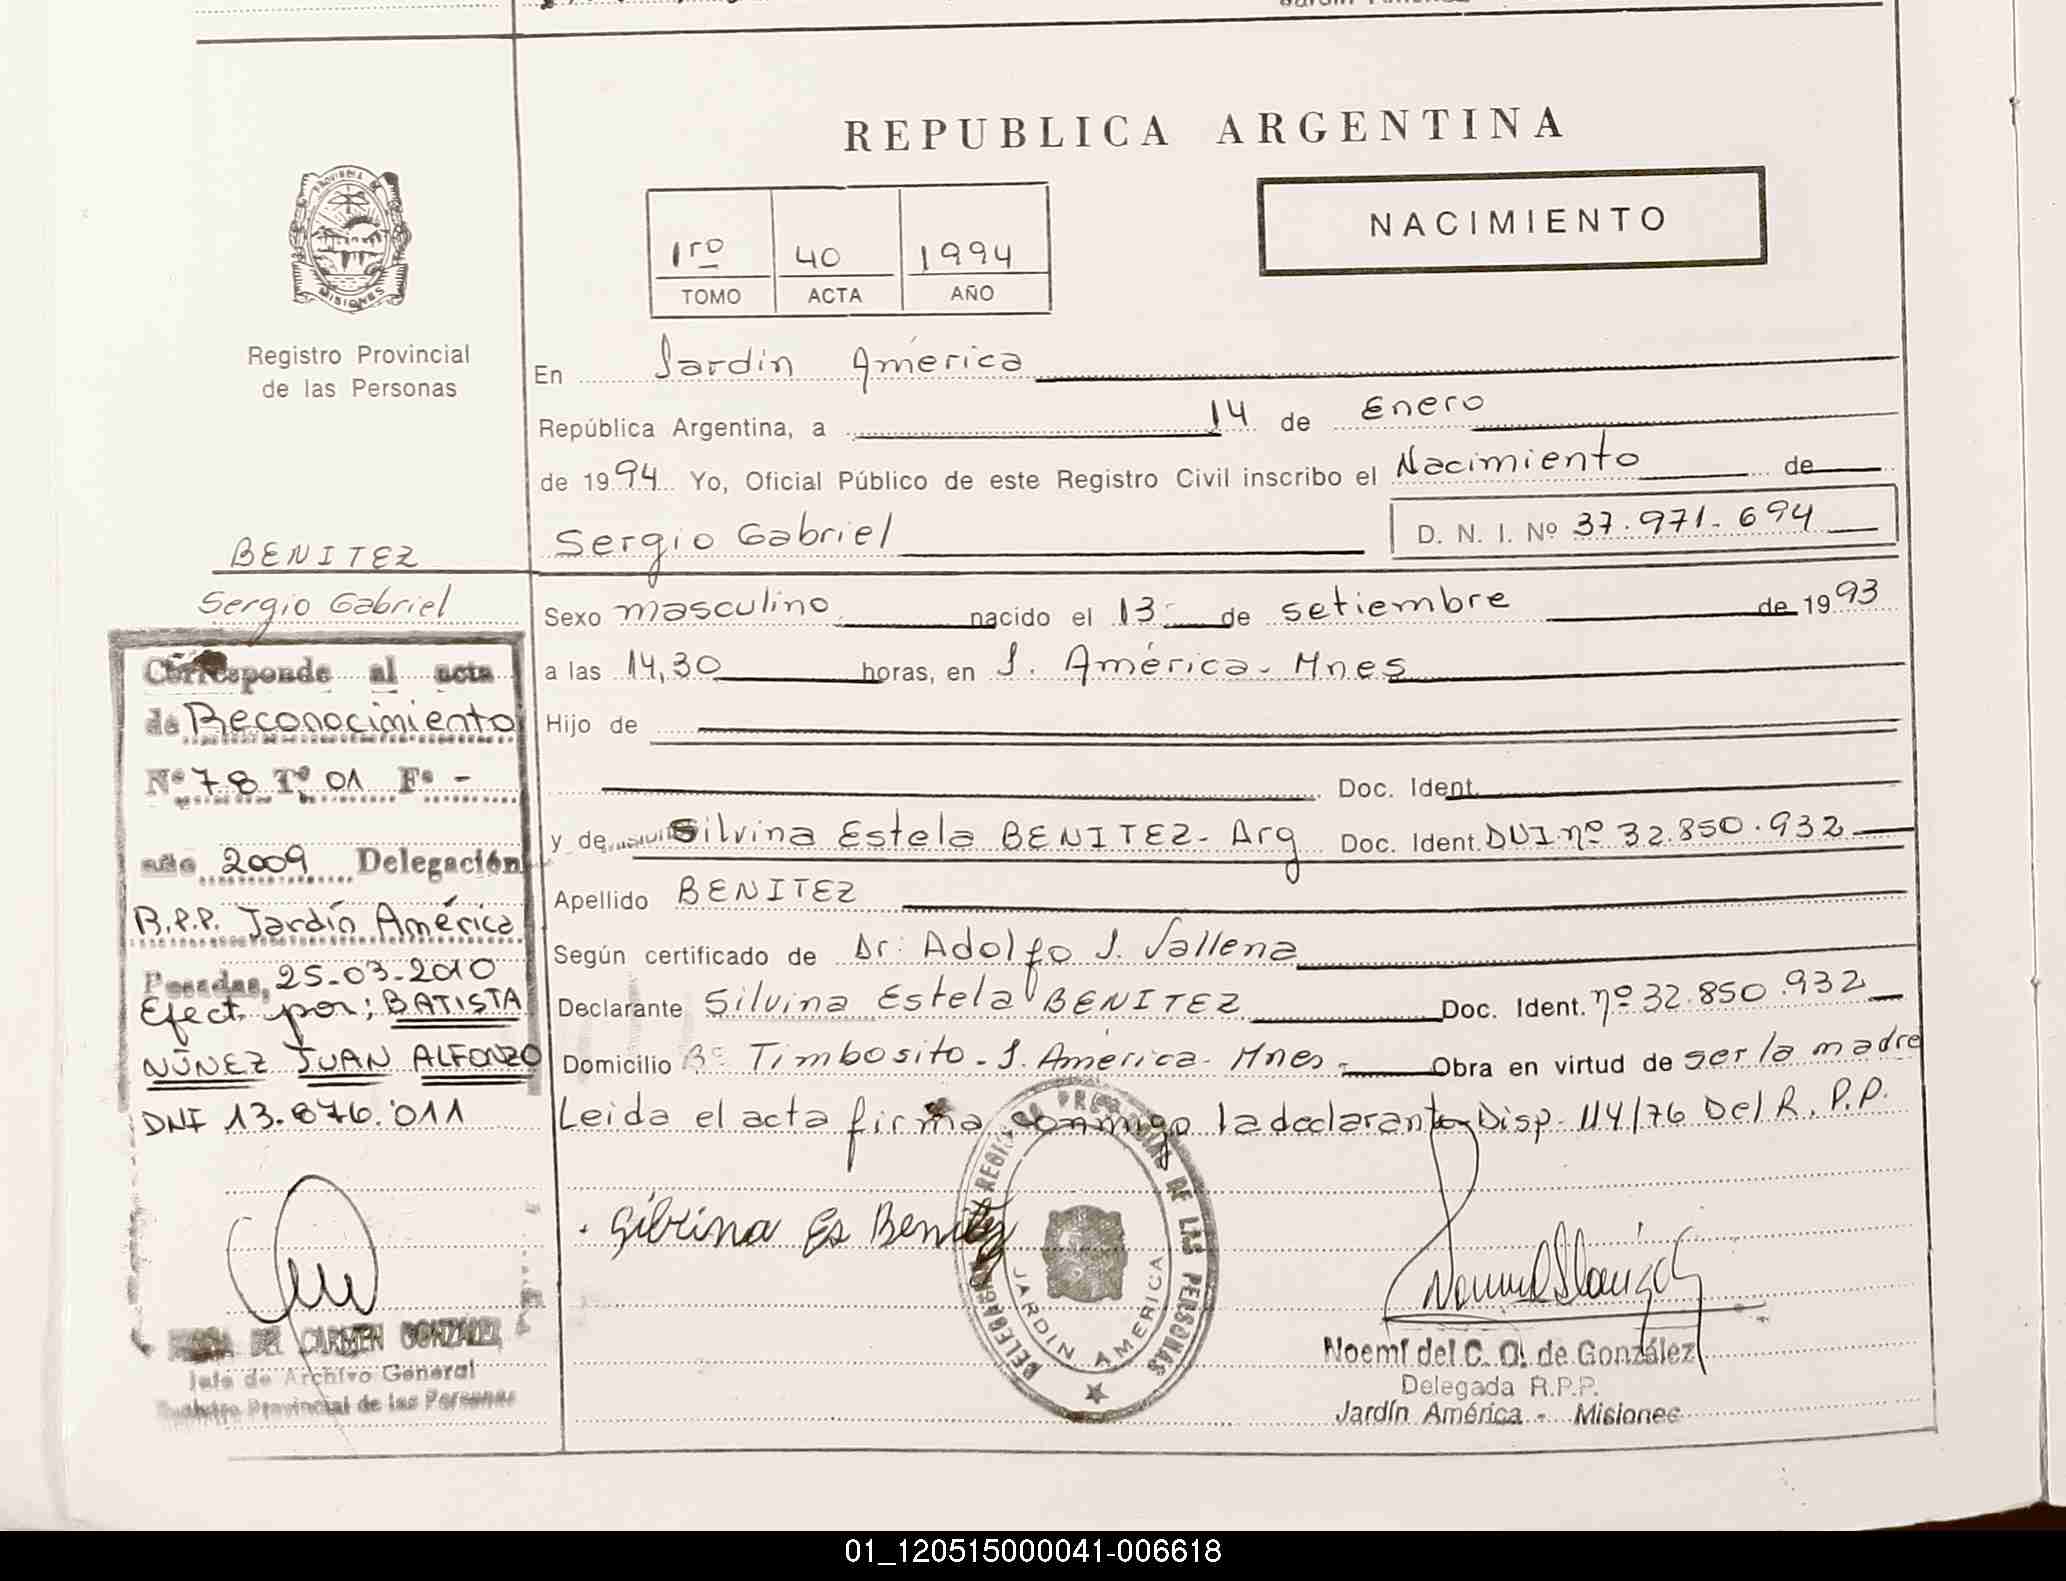 REPUBLICA ARGENTINA
PROVINCIA DE
MISIONES
Registro Provincial
de las Personas
1ro 40 1994
TOMO ACTA AÑO
NACIMIENTO
En Jardín América
República Argentina, a 14 de Enero
de 1994 Yo, Oficial Público de este Registro Civil inscribo el Nacimiento de
Sergio Gabriel D. N. I. Nº 37.971.694
BENITEZ
Sergio Gabriel
Sexo masculino nacido el 13 de setiembre de 1993
a las 14,30 horas, en J. América - Mnes
Hijo de
Doc. Ident.
y de Silvina Estela BENITEZ - Arg Doc. Ident. DUI nº 32.850.932
Apellido BENITEZ
Según certificado de Dr. Adolfo J. Vallena
Declarante Silvina Estela BENITEZ Doc. Ident. nº 32.850.932
Domicilio Bº Timbosito - J. América - Mnes - Obra en virtud de ser la madre
Leida el acta firma conmigo la declarante Disp. 114/76 Del R.P.P.
Corresponde al acta
de Reconocimiento
Nº 78 Tº 01 Fº -
año 2009 Delegación
R.P.P. Jardín América
Posadas, 25-03-2010
Efect. por; BATISTA
NÚÑEZ JUAN ALFONZO
DNI 13.876.011
DEL CARMEN GONZALEZ
Jefe de Archivo General
Registro Provincial de las Personas
Silvina Es Benitez
DELEGACION REGISTRO PROVINCIAL DE LAS PERSONAS
JARDIN AMERICA
Noemí del C. O. de González
Delegada R.P.P.
Jardín América - Misiones
01_120515000041-006618